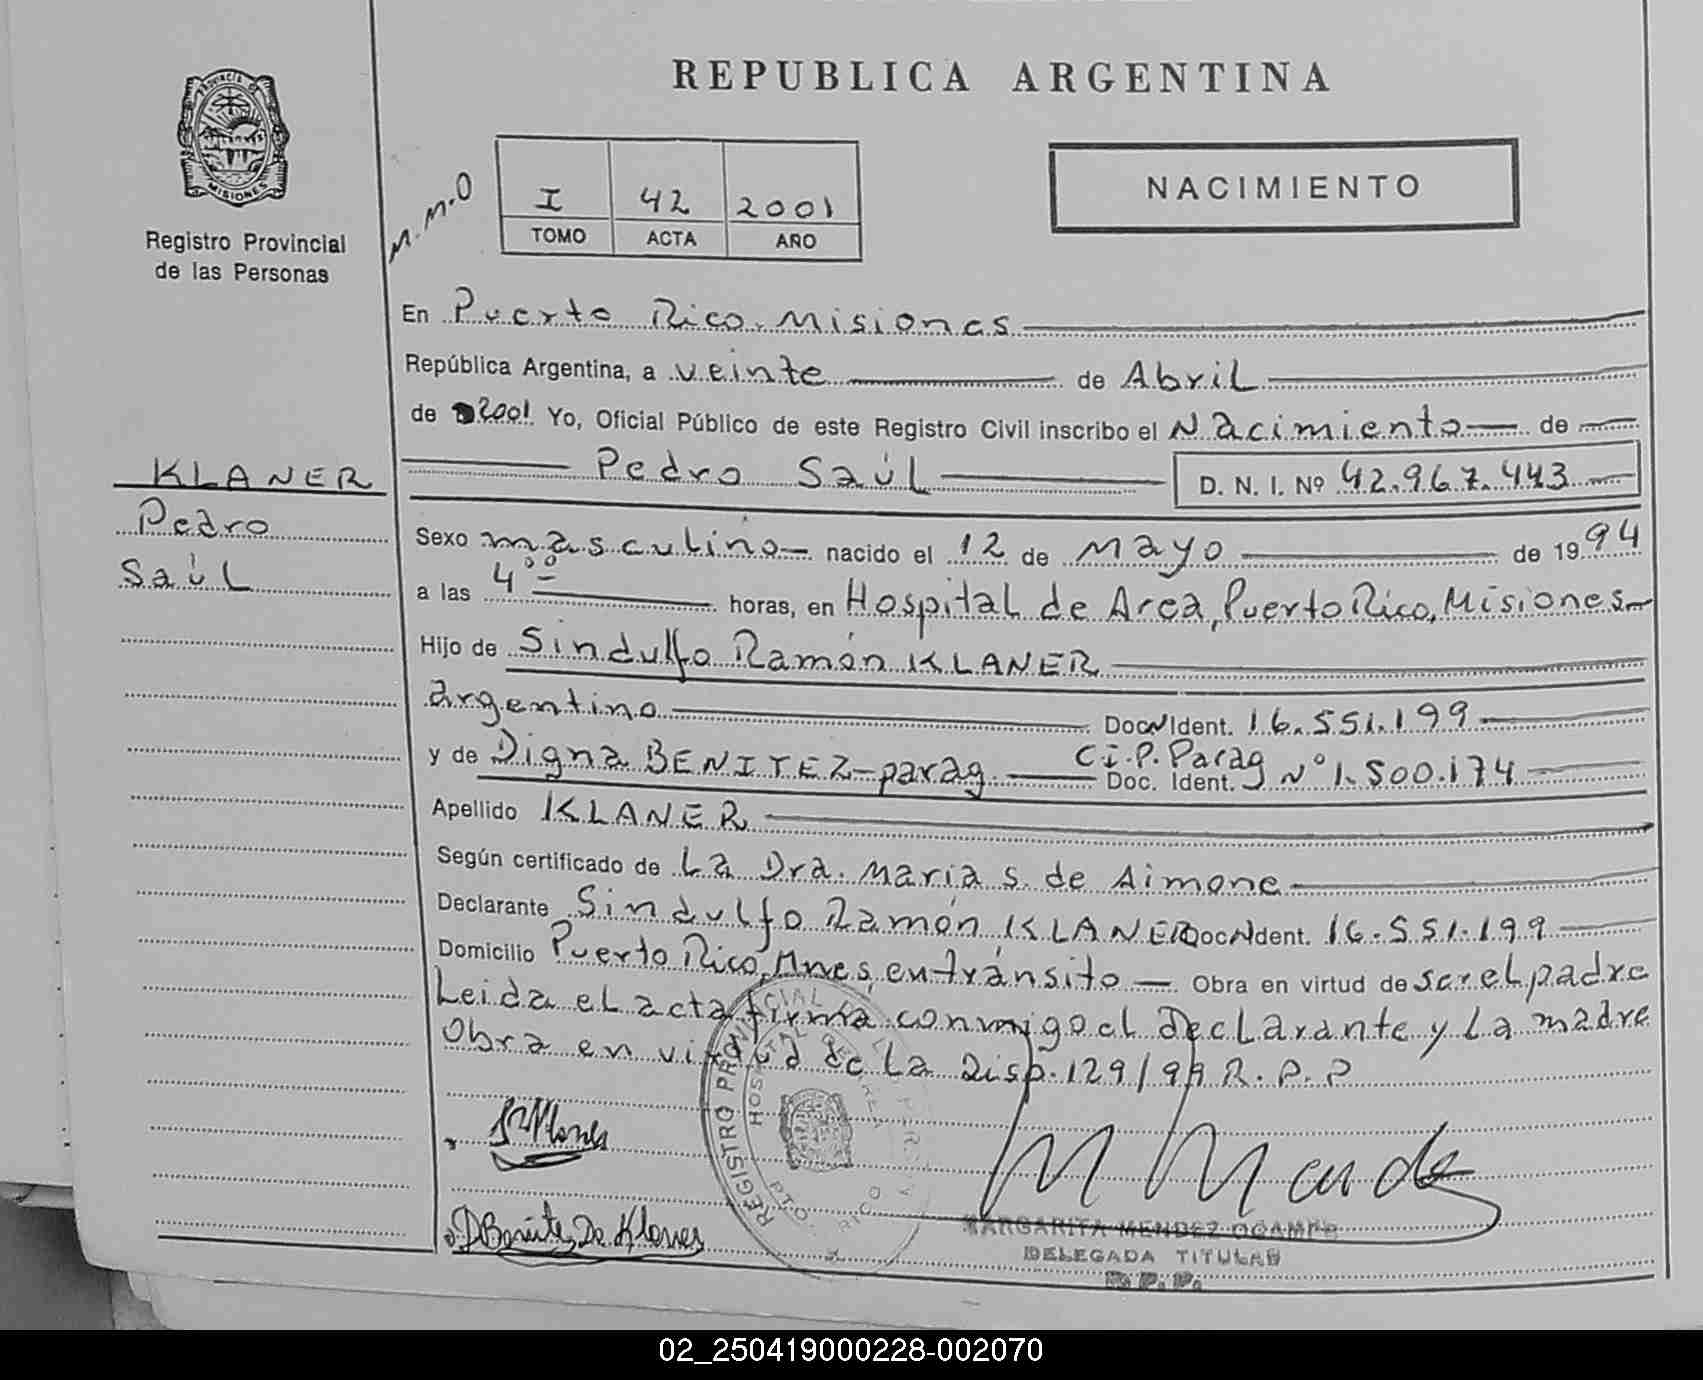 REPUBLICA ARGENTINA
PROVINCIA DE
MISIONES
Registro Provincial
de las Personas
M.M.O
I 42 2001
TOMO ACTA AÑO
NACIMIENTO
En Puerto Rico. Misiones
República Argentina, a veinte de Abril
de 2001 Yo, Oficial Público de este Registro Civil inscribo el Nacimiento de
Pedro Saúl D. N. I. Nº 42.967.443
KLANER
Pedro
Saúl
Sexo masculino nacido el 12 de Mayo de 1994
a las 4⁰⁰ horas, en Hospital de Area, Puerto Rico, Misiones
Hijo de Sindulfo Ramón KLANER
argentino Doc N Ident. 16.551.199
y de Digna BENITEZ-parag C.I.P. Parag Doc. Ident. Nº 1.500.174
Apellido KLANER
Según certificado de La Dra. María S. de Aimone
Declarante Sindulfo Ramón KLANER Doc N Ident. 16.551.199
Domicilio Puerto Rico, Mnes, en tránsito Obra en virtud de ser el padre
Leida el acta firma conmigo el declarante y la madre
Obra en virtud de la Disp. 129/99 R.P.P
REGISTRO PROVINCIAL DE L PERS
HOSPITAL DE AREA
PTO. RICO
D Benitez De Klaner
M Mendez
MARGARITA MENDEZ OCAMPO
DELEGADA TITULAR
R.P.P.
02_250419000228-002070